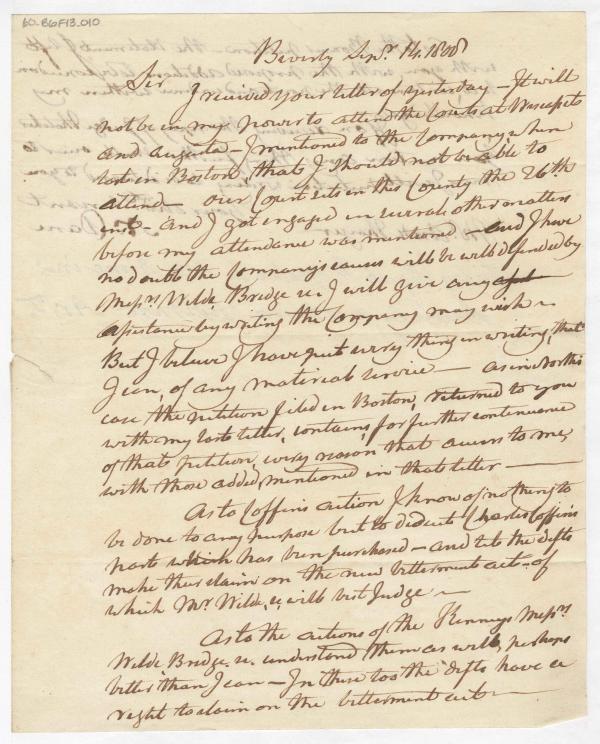 60-B6F13_010
Beverly Sepr. 14. 1808
Sir I received your letter of yesterday - It will
not be in my power to attend the Courts at Wiscasset
and Augusta - I mentioned to the Company, when
last in Boston, that I should not be able to
attend - our Court sits in this County the 26th
inst. - and I got engaged in several other matters
before my attendance was mentioned - and I have
no doubt the Company's causes will be well defended by
Messrs. Wilde, Bridge &c. I will give any
assistance by writing the Company may wish -
But I believe I have put every thing in writing, that
I can, of any material service - as in
case the petition filed in Boston, returned to you
with my last letter, contains, for further continuence
of that petition, every reason that occurs to me,
with those added, mentioned in that letter -
As to Coffin's action I know of nothing to
be done to any purpose but to deduct Charles Coffin's
part which has been purchased - and let the defts
make their claim on the new betterment act - of
which Mr. Wilde, &c will best Judge -
As to the actions of the Kennys Messrs.
Wilde Bridge &c. understand them as well, perhaps
better than I can - In these too the defts have a
right to claim on the betterment act -